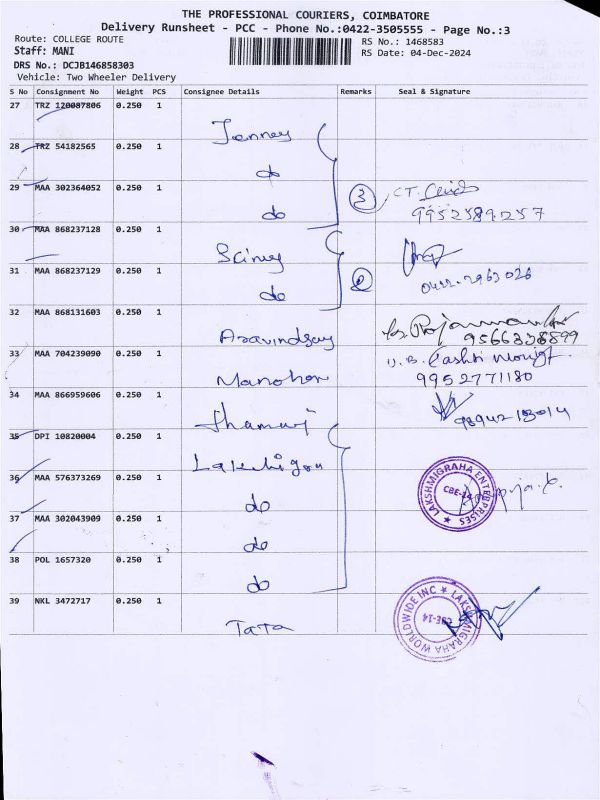 THE PROFESSIONAL COURIERS, COIMBATORE
Delivery Runsheet - PCC - Phone No.:0422-3505555 - Page No.:3
Route: COLLEGE ROUTE
RS No.: 1468583
Staff: MANI
RS Date: 04-Dec-2024
DRS No.: DCJB146858303
Vehicle: Two Wheeler Delivery
S No Consignment No Weight PCS Consignee Details Remarks Seal & Signature
27 TRZ 120087806 0.250 1
Jenney
28 TRZ 54182565 0.250 1
do
29 MAA 302364052 0.250 1
do 3 CT.
9952589257
30 MAA 868237128 0.250 1
31 MAA 868237129 0.250 1
do 2 0422-2963026
32 MAA 868131603 0.250 1
9566338899
33 MAA 704239090 0.250 1
Manohar 9952771180
34 MAA 866959606 0.250 1
35 DPI 10820004 0.250 1
36 MAA 576373269 0.250 1
do
LAKSHMIGRAHA ENTERPRISES
CBE-14
37 MAA 302043909 0.250 1
do
38 POL 1657320 0.250 1
do
39 NKL 3472717 0.250 1
TATA
LAKSHMIGRAHA WORLDWIDE INC
CBE-14